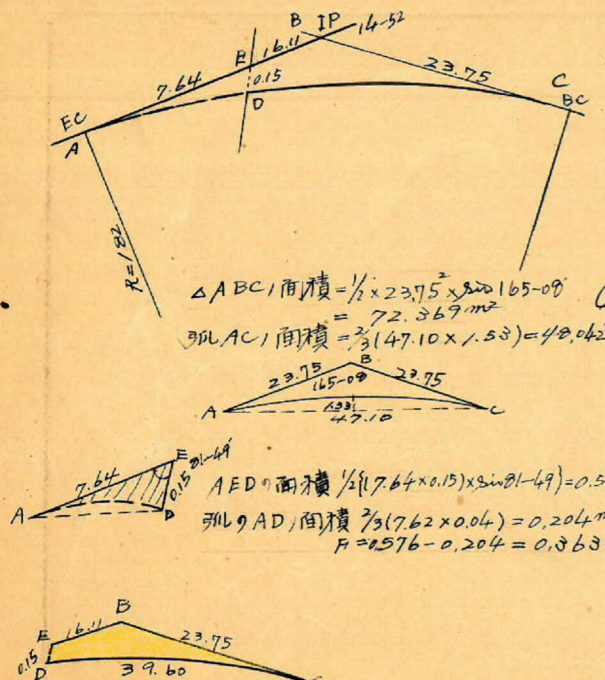 B IP 14-52
E 16.11
7.64 0.15 23.75
D
EC
A
C
BC
R=182
△ABCノ面積=1/2×23.75²×sin165-08
= 72.369m²
弧ACノ面積=2/3(47.10×1.53)=48.042
B
23.75 165-08 23.75
A 1.53 C
47.10
E 81-49
7.64 0.15
A D
AEDの面積 1/2(7.64×0.15)×sin81-49)=0.5
弧のADノ面積 2/3(7.62×0.04)=0.204m
F=0.576-0.204=0.363
B
E 16.11 23.75
0.15
D 39.60